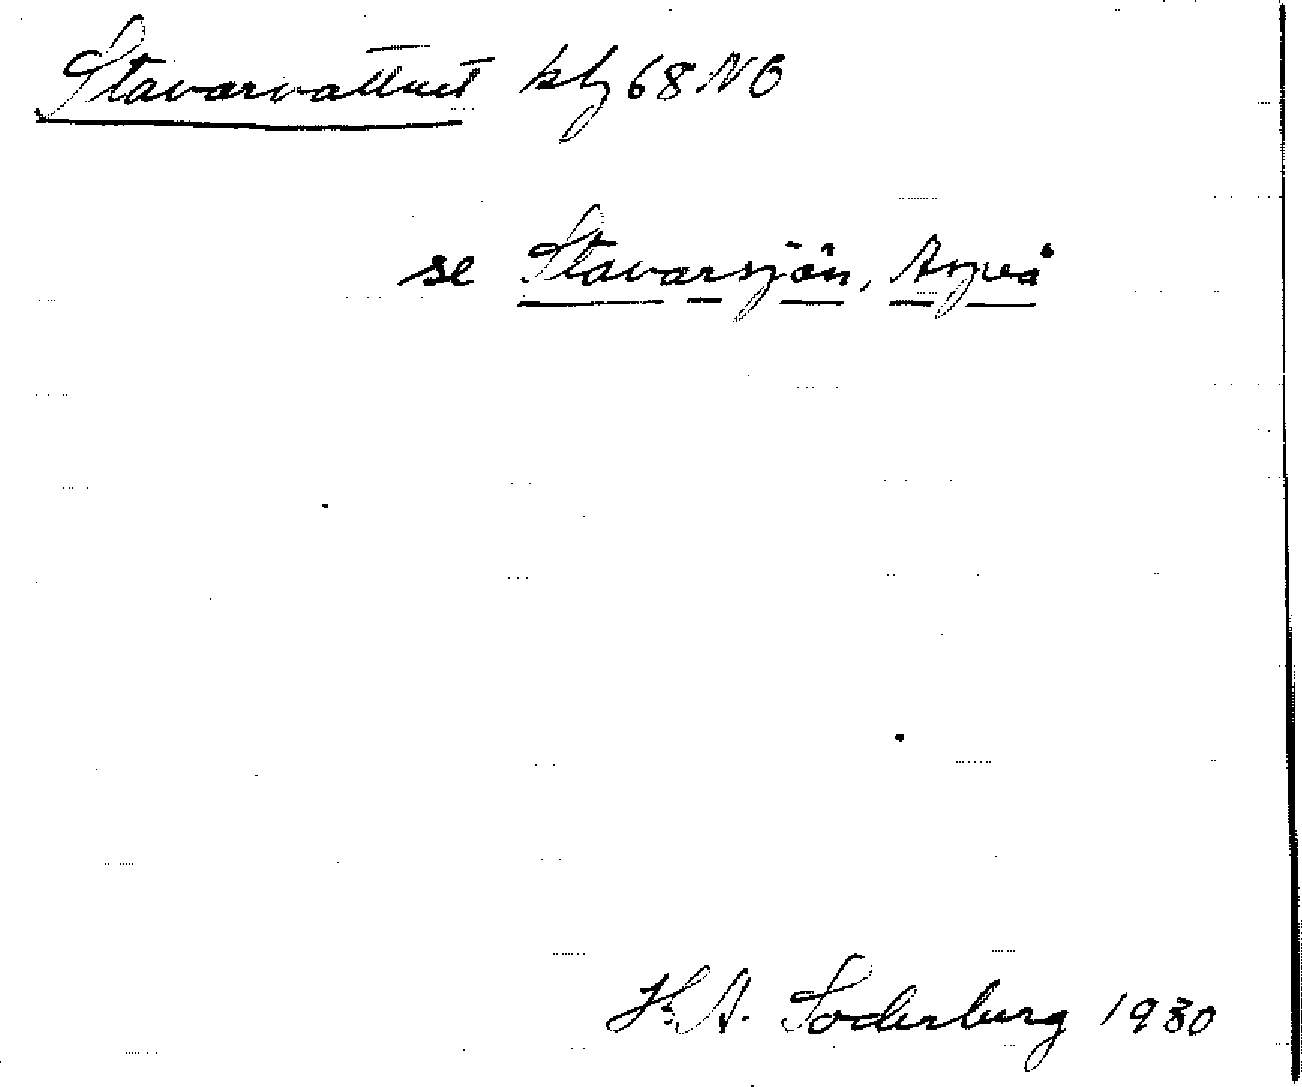 Stavarvattnet kbg 68 NO
se Stavarsjön, Aspeå
H. A. Soderberg 1930